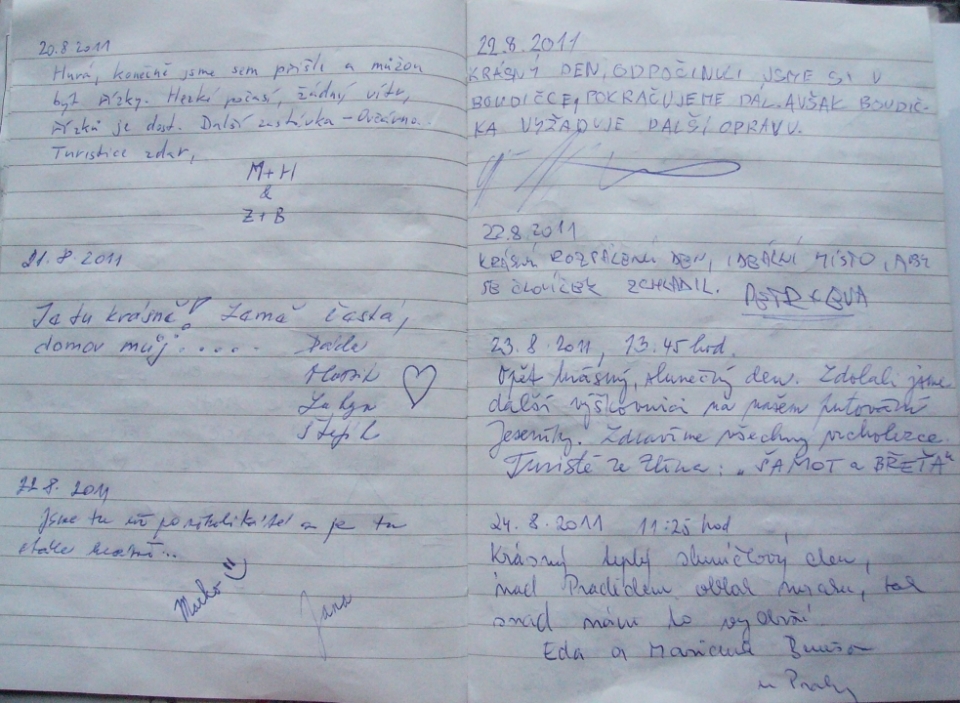 20.8 2011
Hurá, konečně jsme sem přišli a můžou
být řízky. Hezké počasí, žádný vítr,
řízků je dost. Další zastávka – Ovčárna.
Turistice zdar,
M+H
&
Z+B
21.8.2011
Je tu krásně! Země
domov můj . . . . .
22.8. 2011
Jsme tu už po několikáté a je tu
stále krásně...
Jana
22.8.2011
KRÁSNÝ DEN, ODPOČINULI JSME SI V
BOUDIČCE, POKRAČUJEME DÁL. AVŠAK BOUDIČ-
KA VYŽADUJE DALŠÍ OPRAVU.
22.8.2011
KRÁSNÝ ROZPÁLENÝ DEN, IDEÁLNÍ MÍSTO, ABY
SE ČLOVÍČEK ZCHLADIL. PETR & EVA
23.8.2011, 13.45 hod.
Opět krásný, slunečný den. Zdolali jsme
další výškovnici na našem putování
Jeseníky. Zdravíme všechny vrcholovce.
Turisté ze Zlína: „ŠAMOT a BŘEŤA“
24.8.2011 11:25 hod
Krásný teplý sluníčkový den,
nad Pradědem oblak mraků, tak
snad nám to vydrží!
Eda a
z Prahy